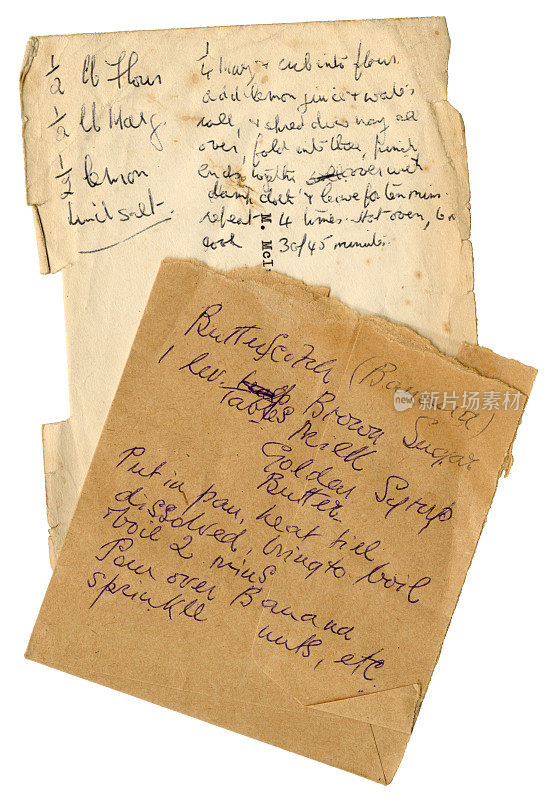 ½ lb Flour
½ lb Marg.
½ lemon
salt.
¼ Marg + rub into flour
add lemon juice + water
roll, + shred marg all
over, fold into three,
ends over wet
damp cloth + leave for ten mins.
repeat 4 times. Hot oven,
cook 30/45 minutes.
M. McI
Butterscotch (Banana)
1 lev. Tables Brown Sugar
Milk
Golden Syrup
Butter
Put in pan, heat till
dissolved, bring to boil
+ boil 2 mins
Pour over Banana
sprinkle nuts, etc
new 新图网 素材